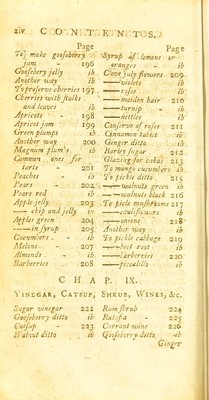 xiv C O N T E N T S.
Page
To make gooseberry
jam - 196
Gooseberry jelly ib
Another way ib
To preserve cherries 197
Cherries with stalks
and leaves ib
Apricots - 198
Apricot jam 199
Green plumps ib
Another way 200
Magnum plum's ib
Common ones for
tarts - 201
Peaches - ib
Pears - 202
Pears red ib
Apple jelly 203
—— chip and jelly ib
Apples green 204
—— in syrup 205
Cucumbers - ib
Melons - 207
Almonds - ib
Barberries 208
Page
Syrup of lemons or
oranges - ib
Clove july flowers 209
—— violet ib
—— roses ib
—— maiden hair 210
—— turnip - ib
—— nettles ib
Conserve of roses 211
Cinnamon tablet ib
Ginger ditto ib
Barley sugar 212
Glazing for cakes 213
To mango cucumbers ib
To pickle ditto 215
—— walnuts green ib
—— walnuts black 216
To pickle mushrooms 217
—— cauliflowers ib
—— onions 218
Another way ib
To pickle cabbage 219
—— beet root ib
—— barberries 220
—— piccalillo ib
C H A P. IX.
VINEGAR, CATSUP, SHRUB, WINES, &c.
Sugar vinegar 222
Gooseberry ditto ib
Catsup - 223
Walnut ditto ib
Rum shrub 224
Ratafia - 225
Currant wine 226
Gooseberry ditto ib
Ginger